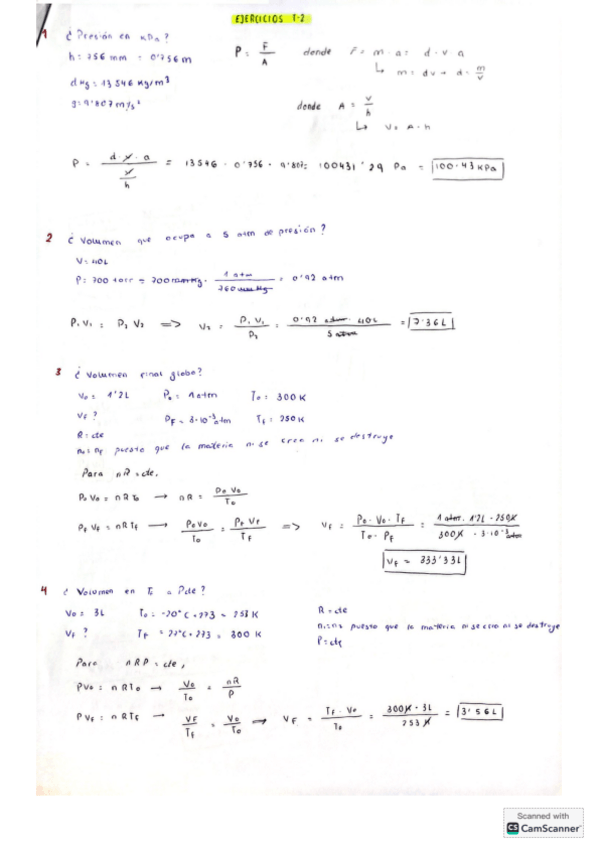 EJERCICIOS T-2
1 ¿ Presión en KPa ?
h = 756 mm = 0'756 m
d Hg = 13 546 Kg/m³
g = 9'807 m/s²
P = F/A donde F = m · a = d · v · a
↳ m = dv → d = m/v
donde A = v/h
↳ V = A · h
P = (d · v · a)/(v/h) = 13546 · 0'756 · 9'807 = 100431'29 Pa = 100'43 KPa
2 ¿ Volumen que ocupa a 5 atm de presión ?
V = 40L
P = 700 torr = 700 mmHg · 1 atm/760 mmHg = 0'92 atm
P₁ V₁ = P₂ V₂ => V₂ = P₁ V₁/P₂ = 0'92 atm · 40L/5 atm = 7'36 L
3 ¿ Volumen final globo?
V₀ = 1'2L P₀ = 1 atm T₀ = 300 K
VF ? PF = 3·10⁻³ atm TF = 250 K
R = cte
n₀ = nF puesto que la materia ni se crea ni se destruye
Para nR = cte,
P₀ V₀ = n R T₀ → nR = P₀ V₀/T₀
PF VF = nRTF → P₀V₀/T₀ = PF VF/TF => VF = P₀ · V₀ · TF/T₀ · PF = 1 atm · 1'2L · 250K/300K · 3·10⁻³ atm
VF = 333'33L
4 ¿ Volumen en TF a P cte ?
V₀ = 3L T₀ = -20°C + 273 = 253 K R = cte
VF ? TF = 27°C + 273 = 300 K n₁ = n₂ puesto que la materia ni se crea ni se destruye
P = cte
Para nRP = cte,
PV₀ = nRT₀ → V₀/T₀ = nR/P
P VF = nRTF → VF/TF = V₀/T₀ → VF = TF · V₀/T₀ = 300K · 3L/253 K = 3'56 L
Scanned with
CS CamScanner